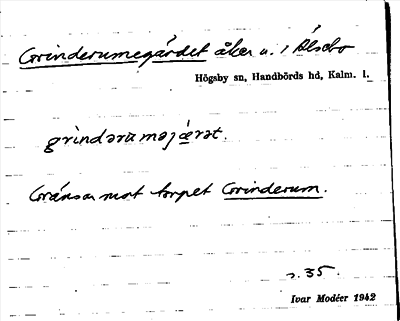 Grinderumegärdet åker u. 1 Älsebo
Högsby sn, Handbörds hd, Kalm. l.
grìndəruməjæ̀rət.
Gränsar mot torpet Grinderum.
s. 35.
Ivar Modéer 1942